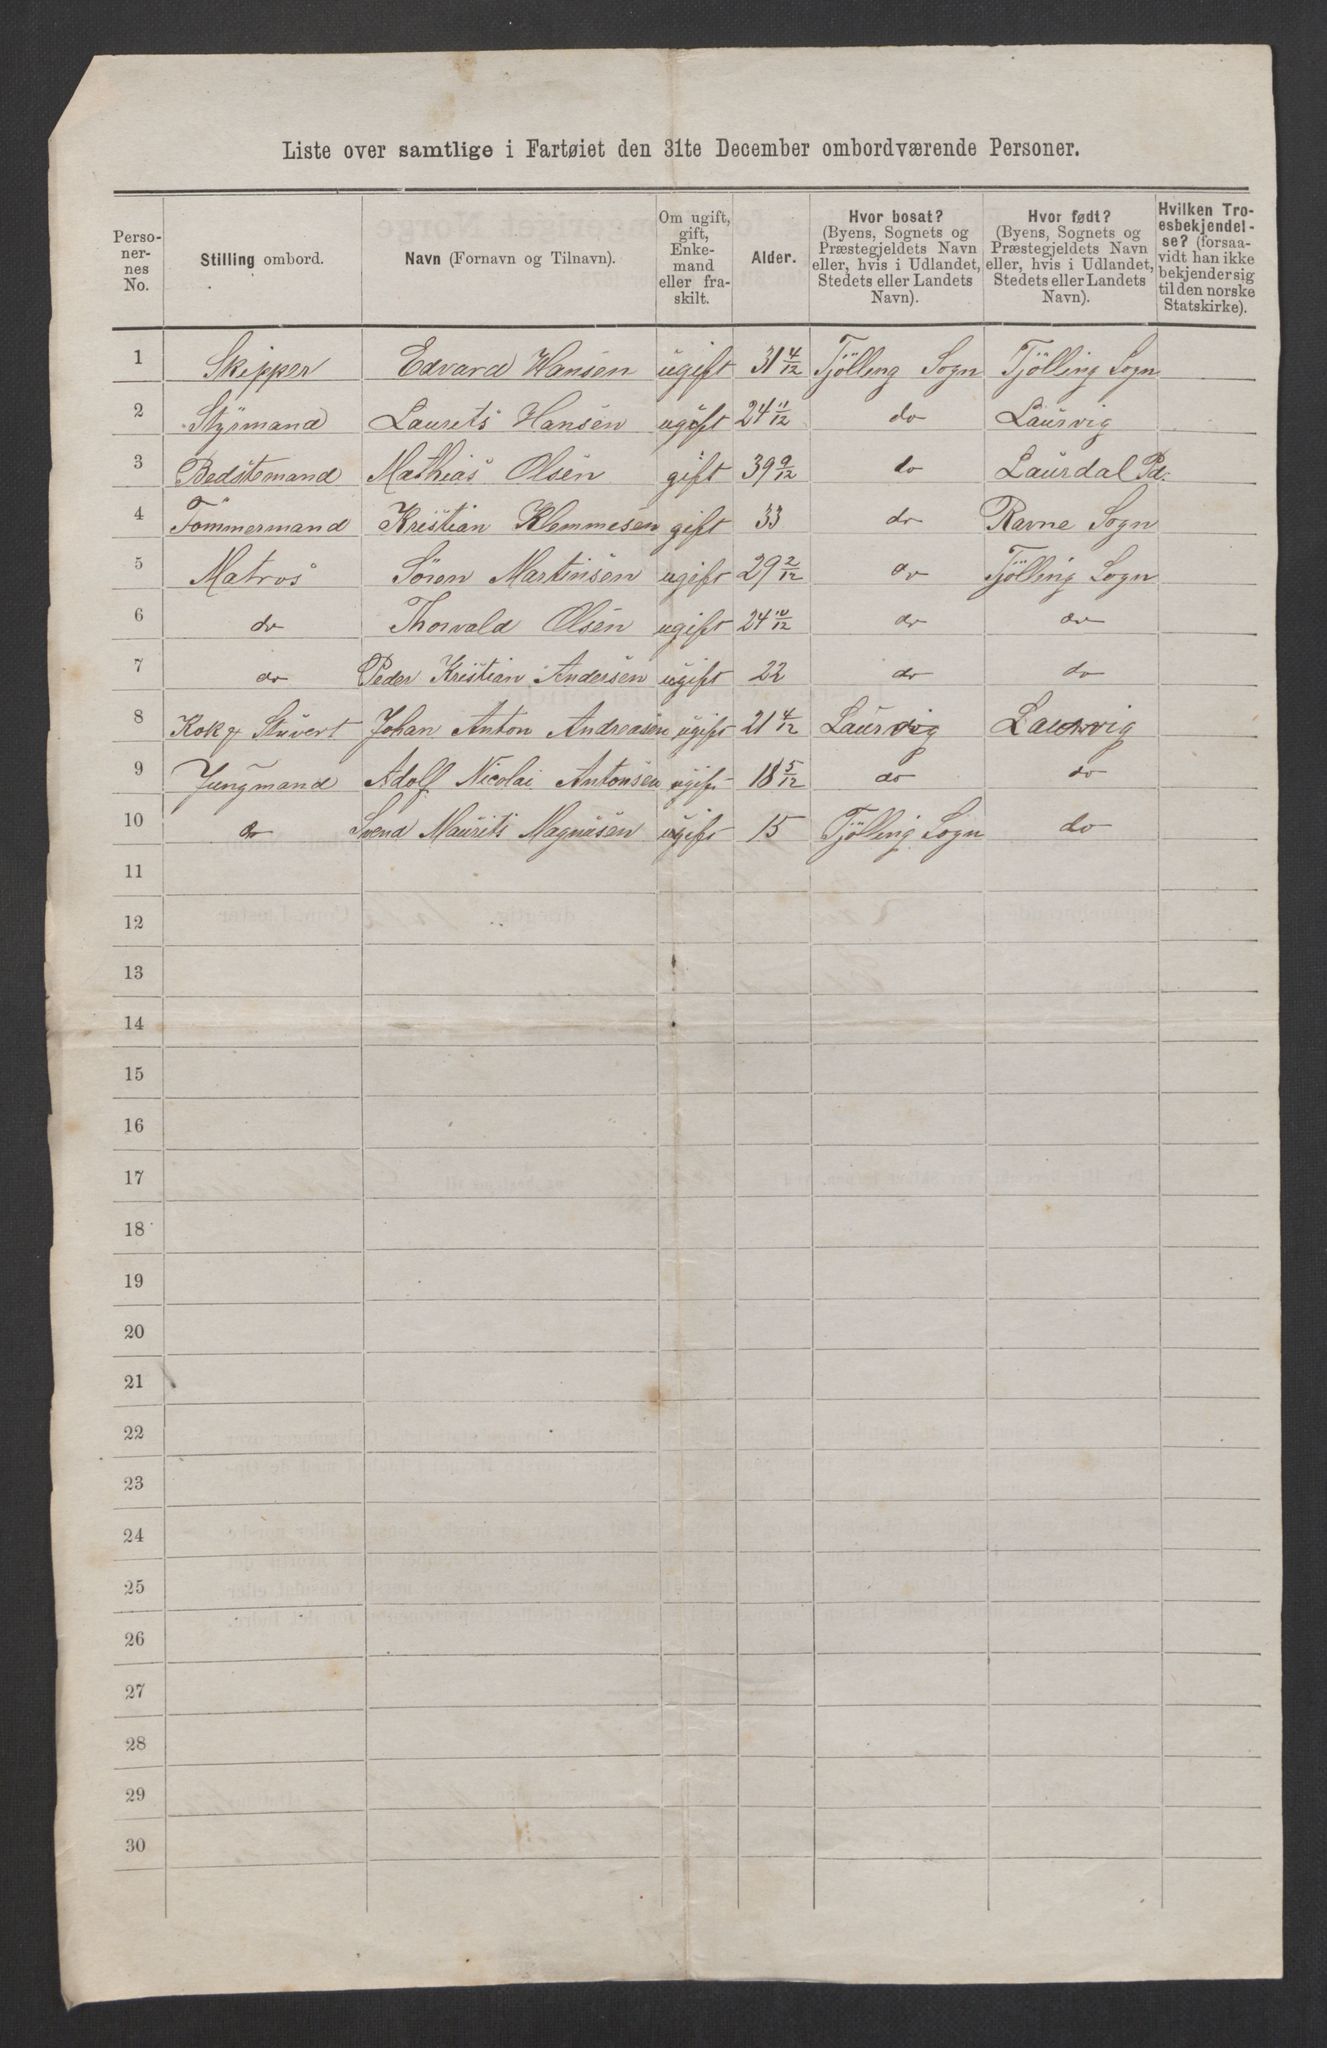 Liste over samtlige i Fartøiet den 31te December ombordværende Personer.
Perso-
ner-
nes
No.
Stilling ombord.
Navn (Fornavn og Tilnavn).
Om ugift,
gift,
Enke-
mand
eller fra-
skilt.
Alder.
Hvor bosat?
(Byens, Sognets og
Præstegjeldets Navn
eller, hvis i Udlandet,
Stedets eller Landets
Navn).
Hvor født?
(Byens, Sognets og
Præstegjeldets Navn
eller, hvis i Udlandet,
Stedets eller Landets
Navn).
Hvilken Tro-
esbekjendel-
se? (forsaa-
vidt han ikke
bekjender sig
til den norske
Statskirke).
1 Skipper Edvard Hansen ugift 31 4/12 Tjölling Sogn Tjölling Sogn
2 Styrmand Laurets Hansen ugift 24 11/12 do Laurvig
3 Bedstemand Mathias Olsen gift 39 9/12 do Laurdal Pd.
4 Tömmermand Kristian Klemmesen gift 33 do Ravne Sogn
5 Matros Sören Martinsen ugift 29 2/12 do Tjölling Sogn
6 do Thorvald Olsen ugift 24 10/12 do do
7 do Peder Kristian Andersen ugift 22 do do
8 Kok & Stuvert Johan Anton Andreasen ugift 21 4/12 Laurvig Laurvig
9 Jungmand Adolf Nicolai Antonsen ugift 18 5/12 do do
10 do Svend Maurits Magnusen ugift 15 Tjölling Sogn do
11
12
13
14
15
16
17
18
19
20
21
22
23
24
25
26
27
28
29
30